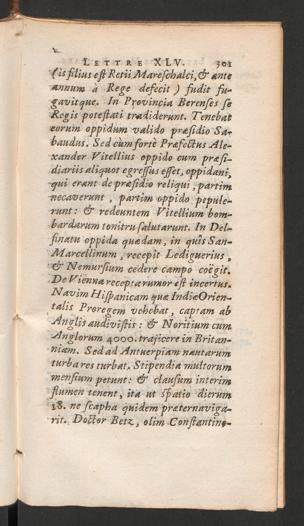 LETTRE XLV. 301
(is filius est Retii Mareschalci, & ante
annum à Rege defecit) fudit fu-
gavitque. In Provincia Berenses se
Regis potestati tradiderunt. Tenebat
eorum oppidum valido præsidio Sa-
baudus. Sed cùm fortè Præfectus Ale-
xander Vitellius oppido cum præsi-
diariis aliquot egressus esset, oppidani,
qui erant de præsidio reliqui, partim
necaverunt, partim oppido pepule-
runt: & redeuntem Vitellium bom-
bardarum tonitru salutarunt. In Del-
finatu oppida quædam, in quis San-
Marcellinum, recepit Lediguerius,
& Nemursium cedere campo coëgit.
De Viënna recepta rumor est incertus.
Navim Hispanicam quæ Indiæ Orien-
talis Proregem vehebat, captam ab
Anglis audivistis: & Noritium cum
Anglorum 4000. trajicere in Britan-
niam. Sed ad Antuerpiam nautarum
turba res turbat. Stipendia multorum
mensium petunt: & clausum interim
flumen tenent, ita ut spatio dierum
18. ne scapha quidem præternaviga-
rit. Doctor Betz, olim Constantino-